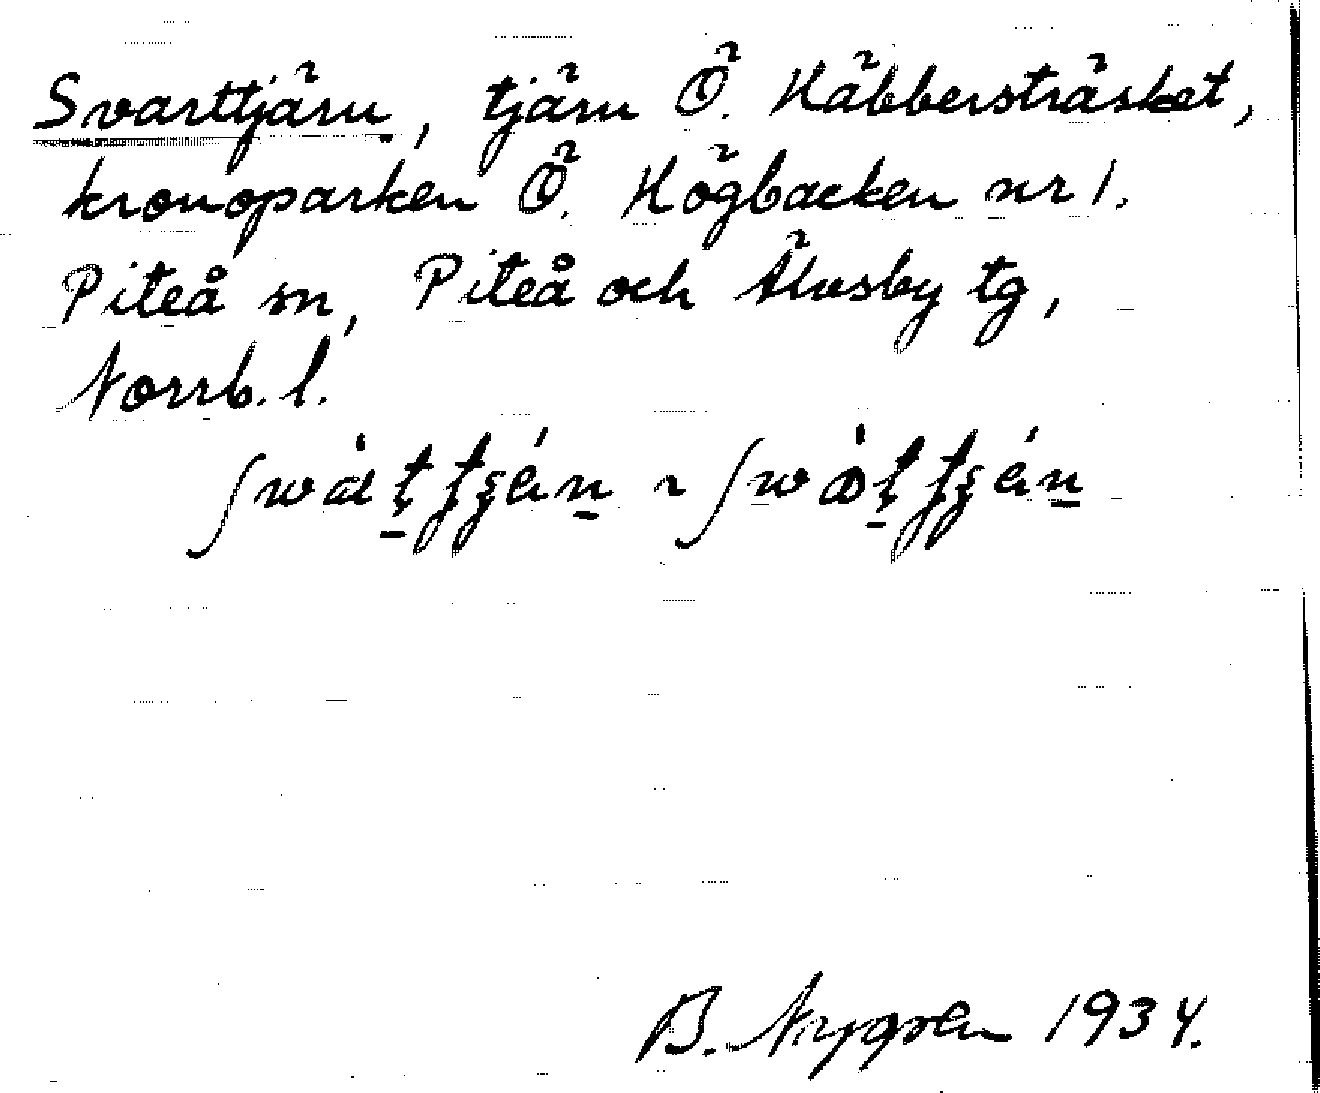 Svarttjärn, tjärn Ö. Häbbersträsket,
kronoparken Ö. Högbacken nr 1.
Piteå sn, Piteå och Älvsby tg,
Norrb. l.
B. Nygren 1934.